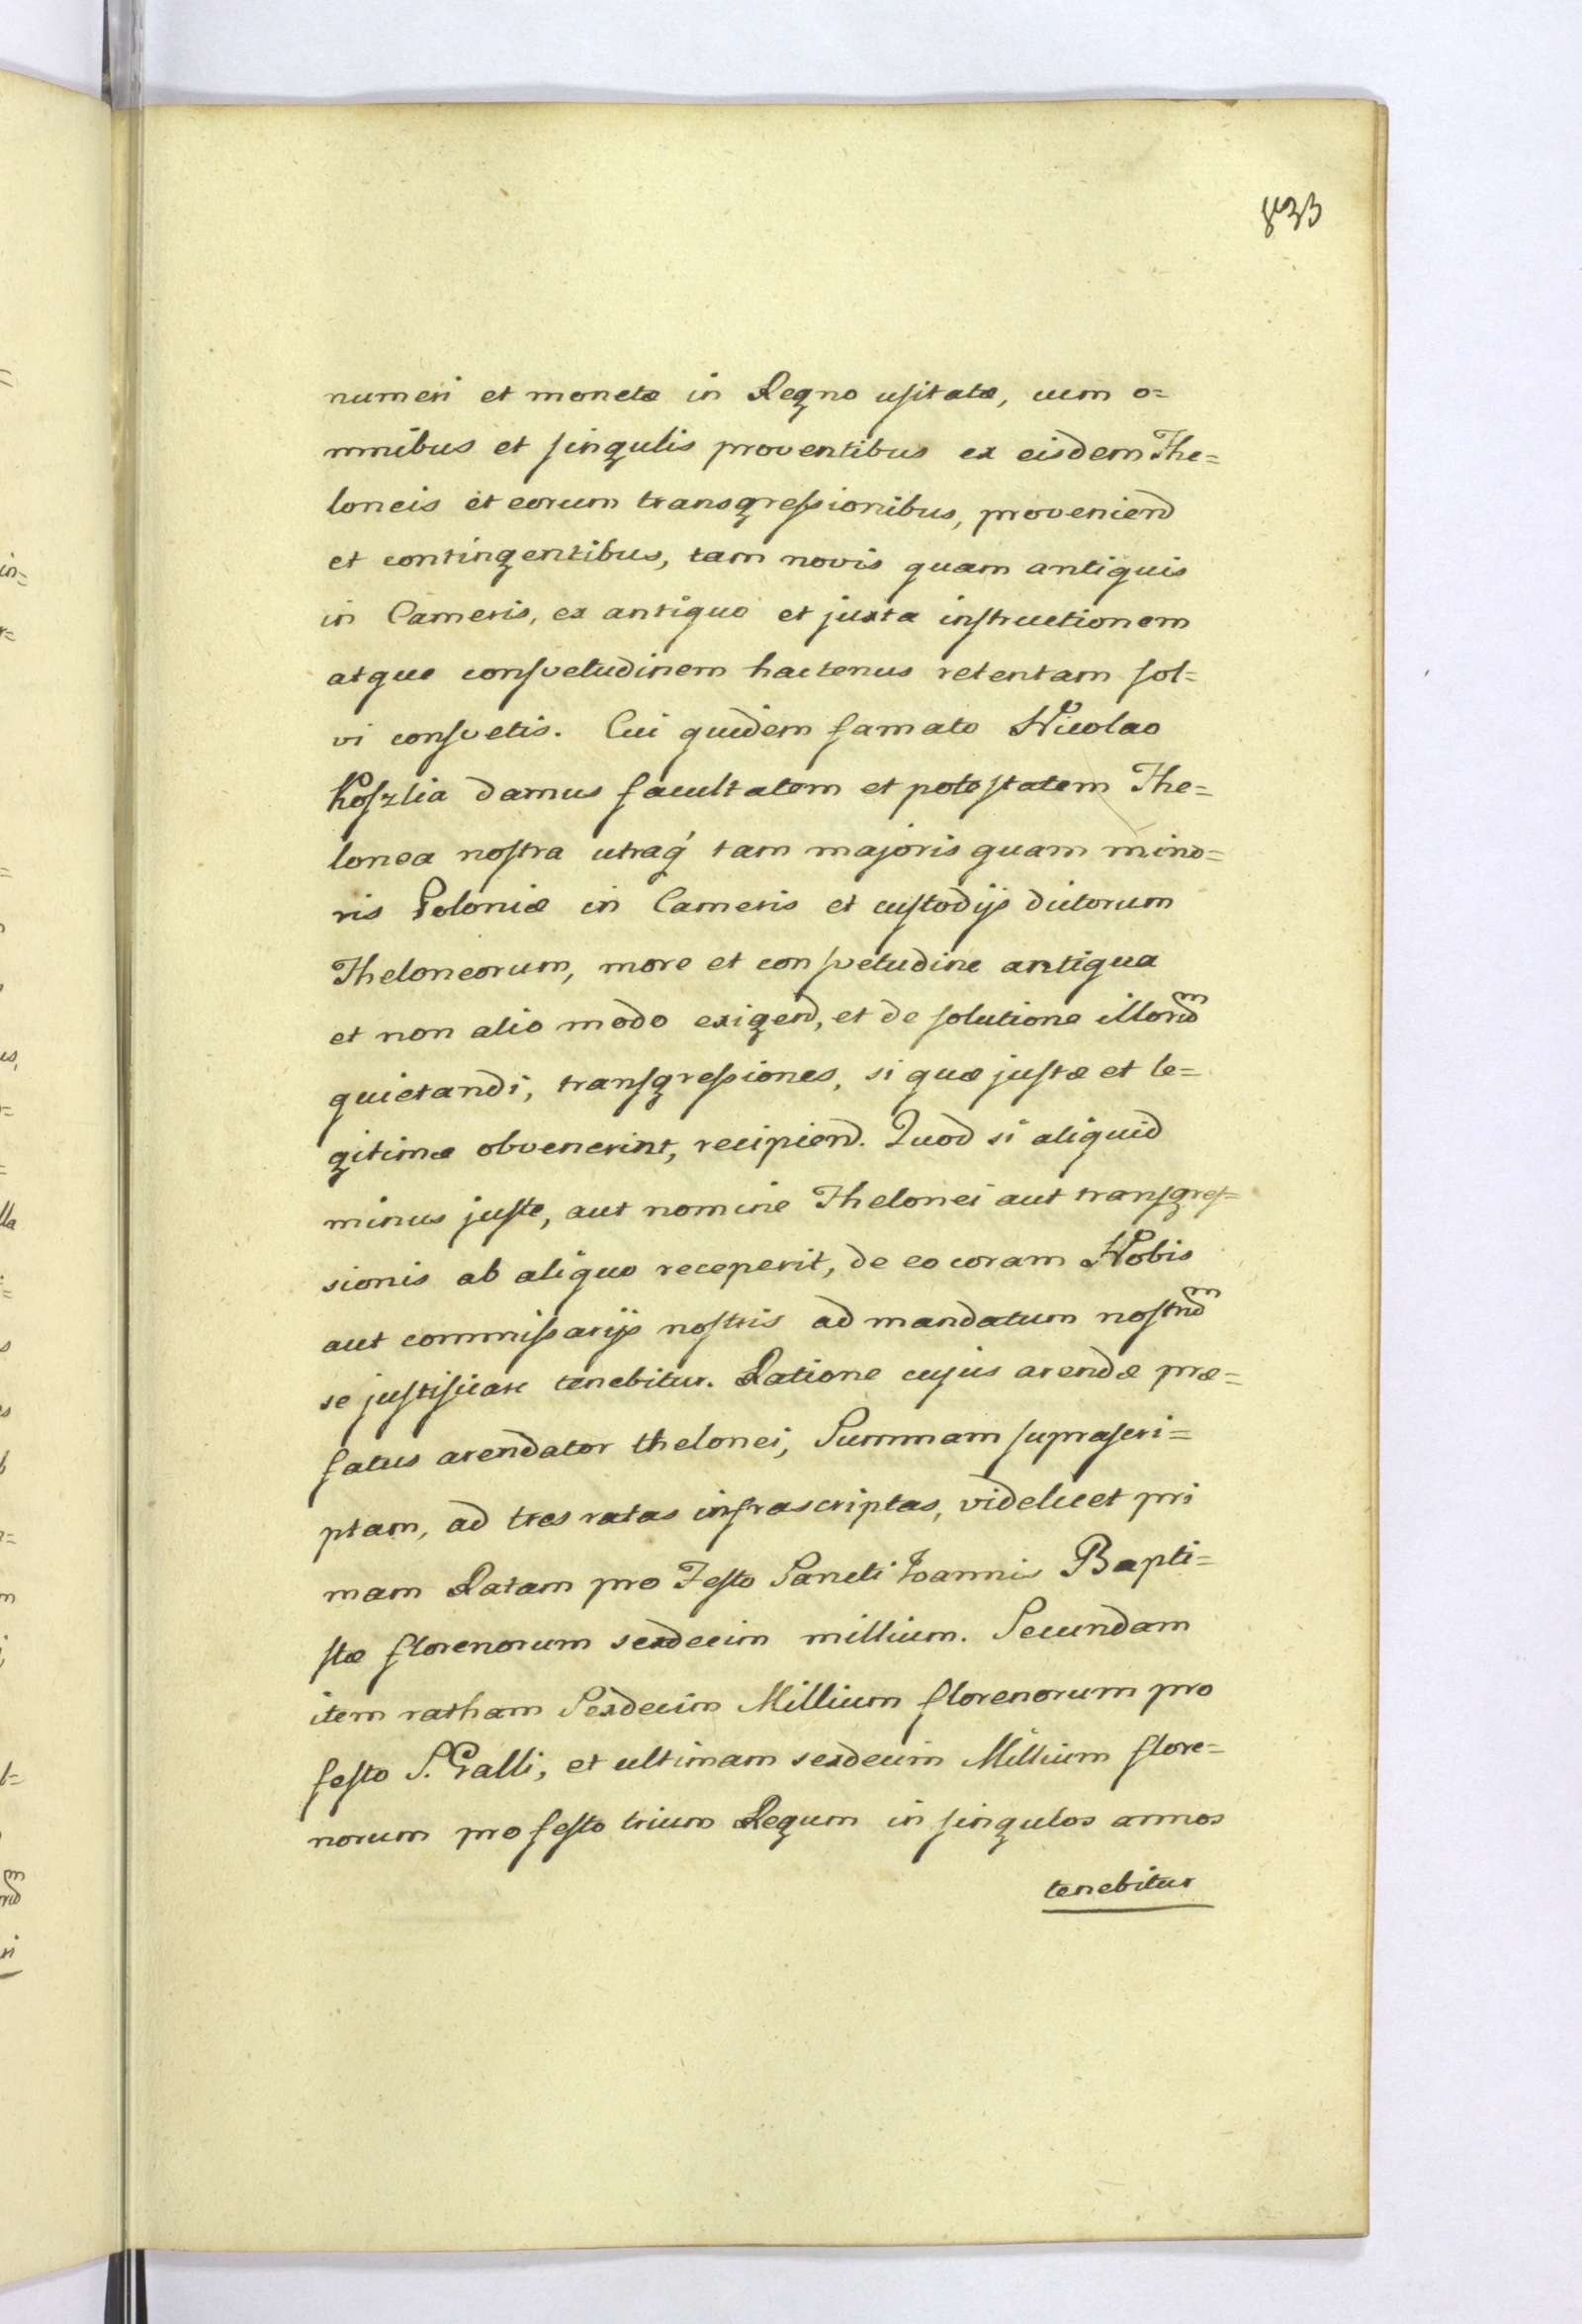 833
numeri et monetæ in Regno usitatæ, cum o=
mnibus et singulis proventibus ex eisdem The=
loneis et eorum transgressionibus, proveniend
et contingentibus, tam novis quam antiquis
in Cameris, ex antiquo et juxta instructionem
atque consvetudinem hactenus retentam sol=
vi consvetis. Cui quidem famato Nicolao
damus facultatem et potestatem The=
lonea nostra utraq' tam majoris quam mino=
ris Poloniæ in Cameris et custodijs dictorum
Theloneorum, more et consvetudine antiqua
et non alio modo exigend, et de solutione illorum
quietandi, transgressiones, si quæ justæ et le=
gitimæ obvenerint, recipiend. Quod si aliquid
minus juste, aut nomine Thelonei aut transgres=
sionis ab aliquo receperit, de eo coram Nobis
aut commissarijs nostris ad mandatum nostrum
se justificare tenebitur. Ratione cujus arendæ præ=
fatus arendator thelonei, Summam suprascri=
ptam, ad tres ratas infrascriptas, videlicet pri
mam Ratam pro Festo Sancti Ioannis Bapti=
stæ florenorum sexdecim millium. Secundam
item ratham Sexdecim Millium florenorum pro
festo S. Galli, et ultimam sexdecim Millium flore=
norum pro festo trium Regum in singulos annos
tenebitur